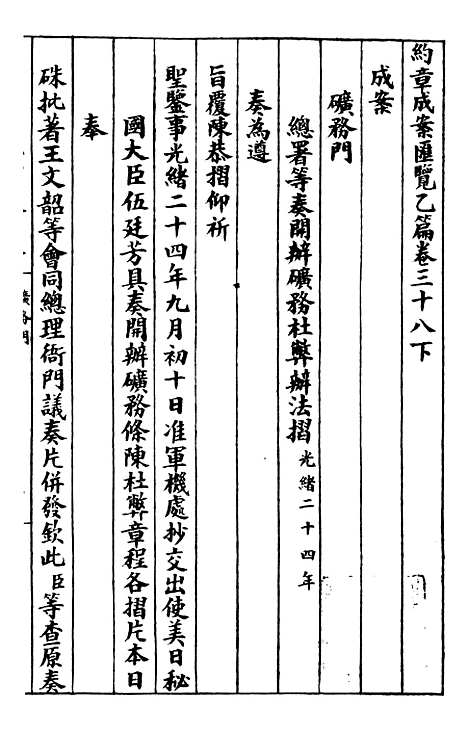 約章成案匯覽乙篇卷三十八下
成案
礦務門
總署等奏開辦礦務杜弊辦法摺 光緒二十四年
奏為遵
旨覆陳恭摺仰祈
聖鑒事光緒二十四年九月初十日准軍機處抄交出使美日秘
國大臣伍廷芳具奏開辦礦務條陳杜弊章程各摺片本日
奉
硃批著王文韶等會同總理衙門議奏片併發欽此臣等查原奏
礦務門